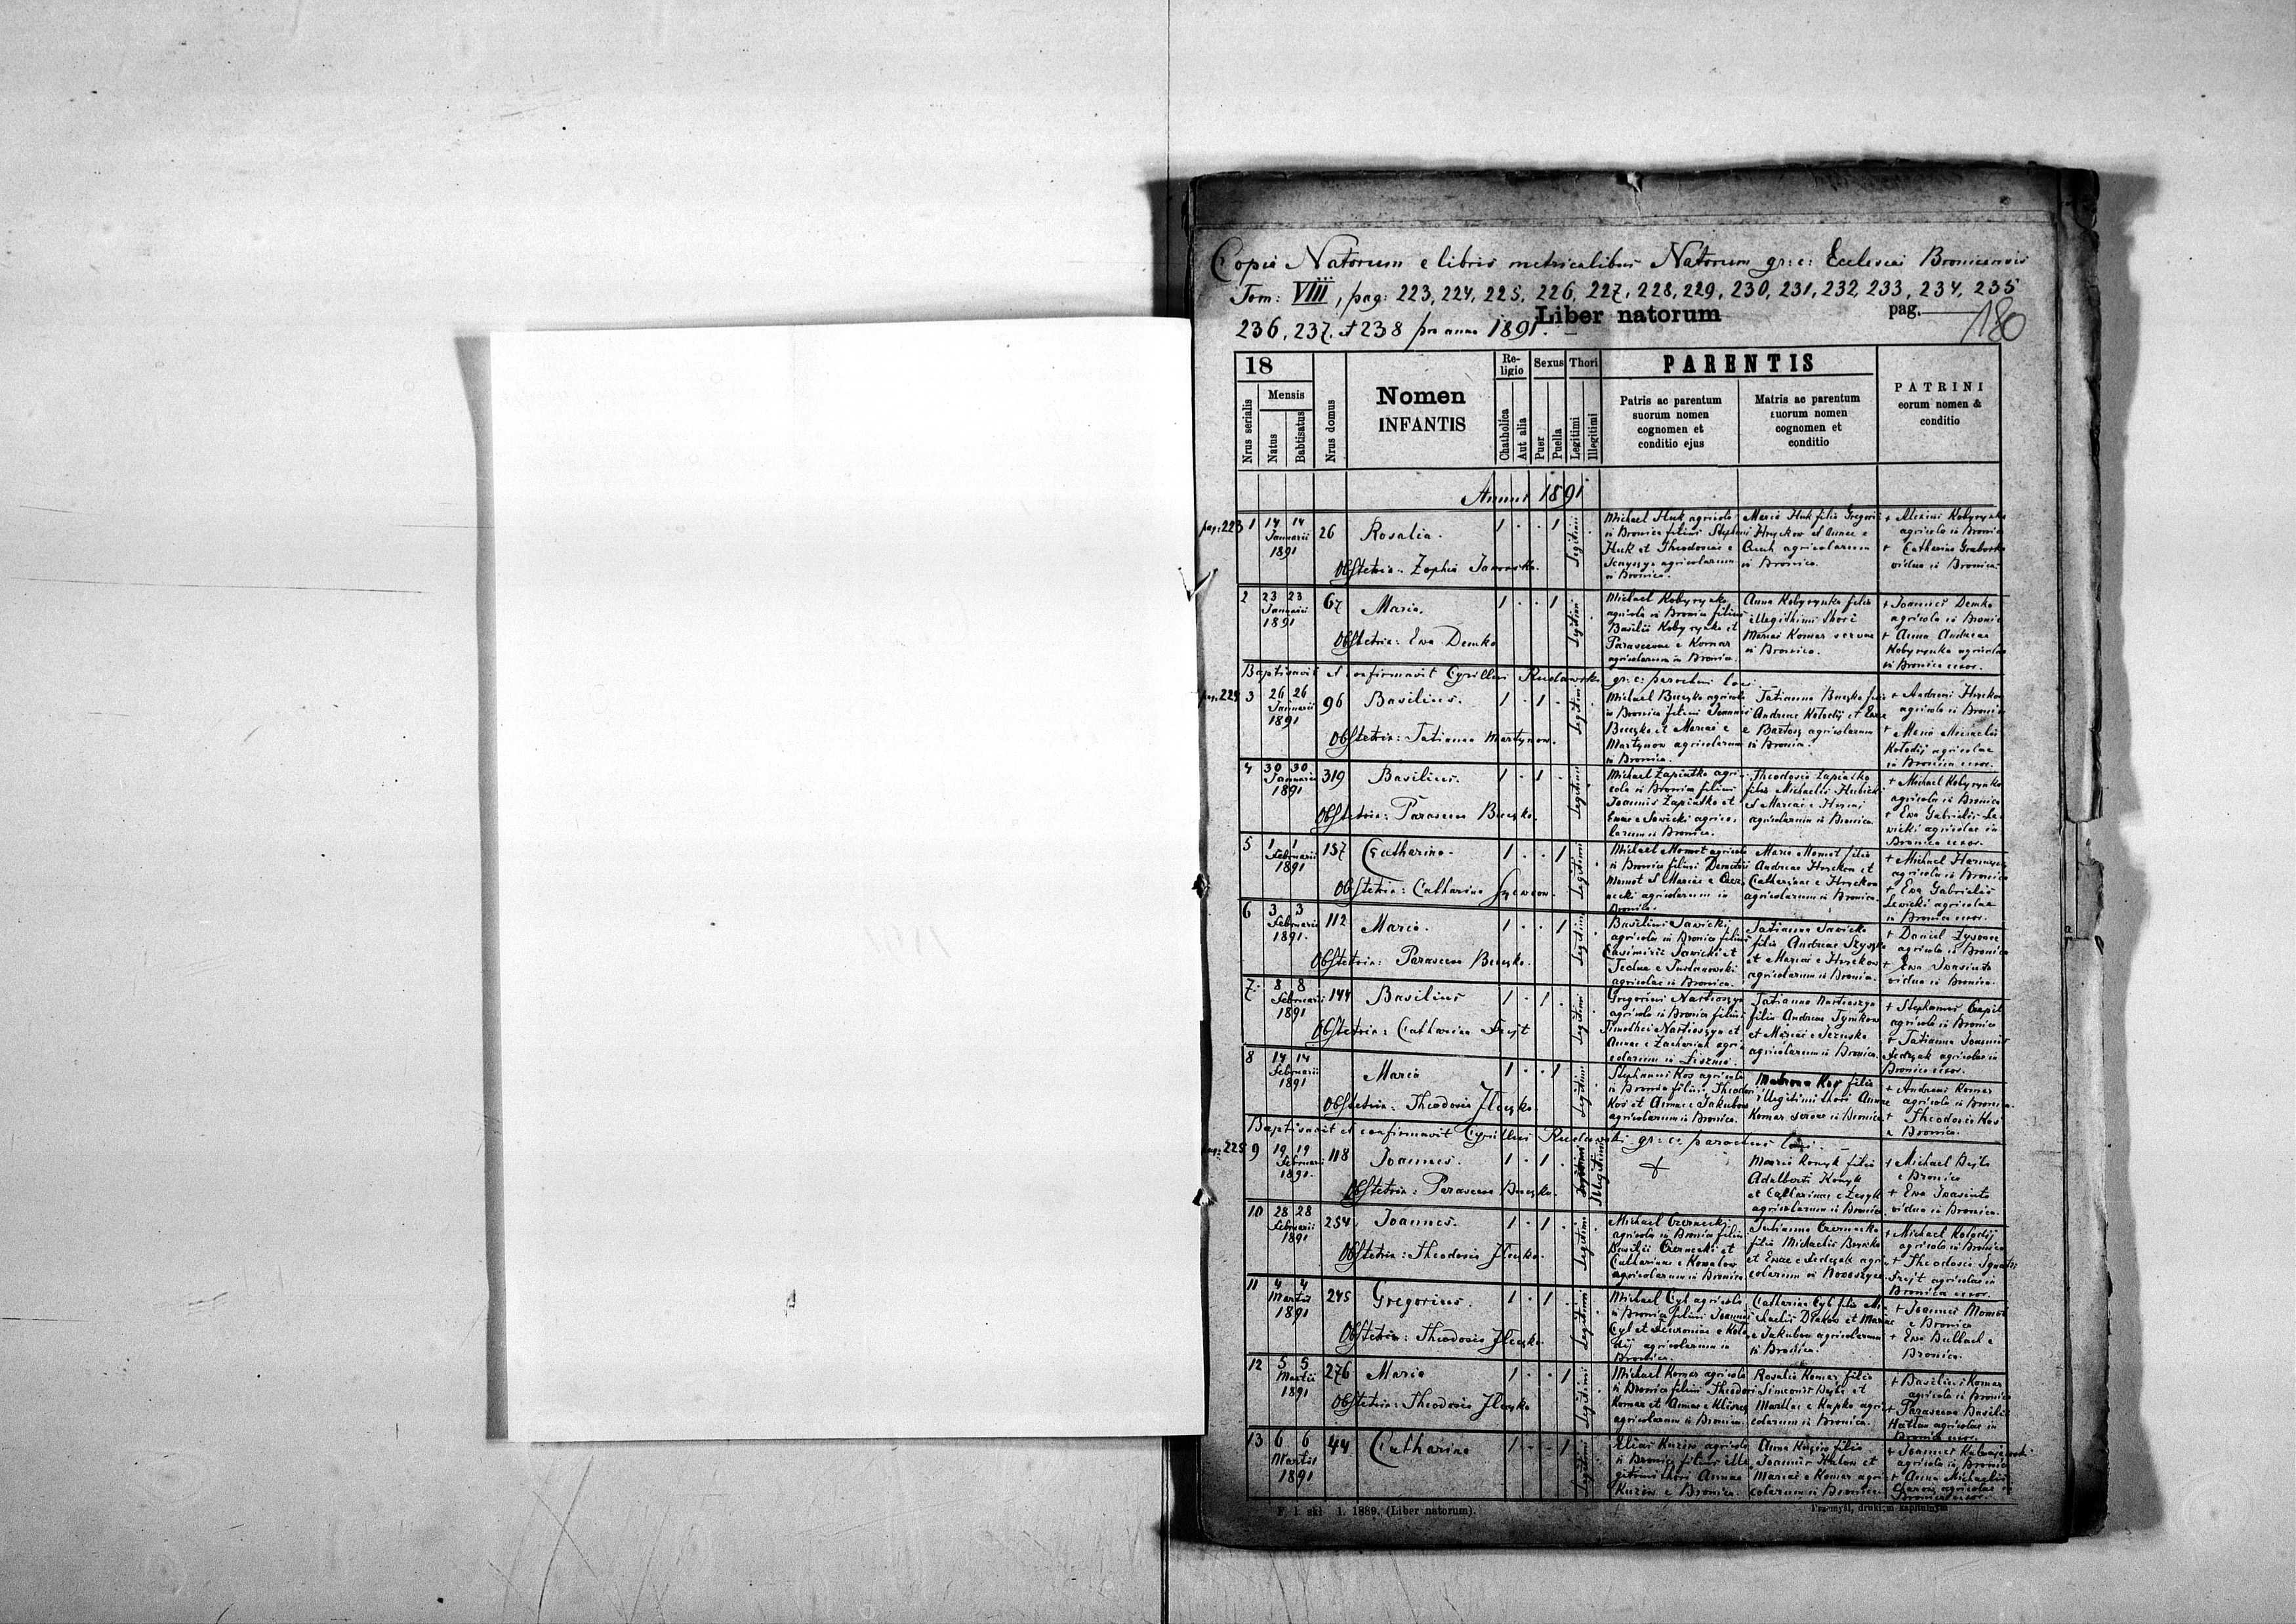 Copia Natorum e libris metricalibus Natorum gr: c: Ecclesiae Bronicensis
Tom: VIII, pag: 223, 224, 225, 226, 227, 228, 229, 230, 231, 232, 233, 234, 235
236, 237 et 238 pro anno 1891.
Liber natorum
pag.
180
18
Nrus serialis
Mensis
Natus
Babtisatus
Nrus domus
Nomen
INFANTIS
Religio
Chatholica
Aut alia
Sexus
Puer
Puella
Thori
Legitimi
Illegitimi
PARENTIS
Patris ac parentum
suorum nomen
cognomen et
conditio ejus
Matris ac parentum
suorum nomen
cognomen et
conditio
PATRINI
eorum nomen &
conditio
Annus 1891
pag: 223 1 14 14 Januarii 1891 26 Rosalia. 1 1 Legitimi
Michael Huk agricola
in Bronica filius Stephani
Huk et Theodosiae e
agricolarum
in Bronica.
Maria Huk filia Gregorii
Hryckow et Annae e
agricolarum
in Bronica.
Kobyrynka
agricola in Bronica
+ Catharina
vidua in Bronica
Obstetrix: Zophia
2 23 23 Januarii 1891 67 Maria. 1 1 Legitimi
Michael Kobyrynka
agricola in Bronica filius
Basilii Kobyrynka et
Parascevae e Komar
agricolarum in Bronica.
Anna Kobyrynka filia
illegithimi thori
Mariae Komar servae
in Bronica.
+ Joannes Demko
agricola in Bronica
+ Anna Andreae
Kobyrynka agricolae
in Bronica uxor.
Obstetrix: Ewa Demko
Baptisavit et confirmavit Cyrillus Rudawski gr: c: parochus loci
3 26 26 Januarii 1891 96 Basilius. 1 1 Legitimi
Michael Buczko agricola
in Bronica filius Joannis
Buczko et Mariae e
Martynow agricolarum
in Bronica.
Tatianna Buczko filia
Andreae Kołodij et Ewae
e Bartosz agricolarum
in Bronica.
+ Andreas Hryckow
agricola in Bronica
+ Maria Michaelis
Kołodij agricolae
in Bronica uxor.
Obstetrix: Tatianna Martynow.
4 30 30 Januarii 1891 319 Basilius. 1 1 Legitimi
Michael Zapiatko agricola
in Bronica filius
Joannis Zapiatko et
Ewae e Sawicki agricolarum
in Bronica.
Theodosia Zapiatko
filia Michaelis
et Mariae e
agricolarum in Bronica.
+ Michael Kobyrynka
agricola in Bronica
+ Ewa Gabrielis Lewicki
agricolae in
Bronica uxor.
Obstetrix: Parasceva Buczko.
5 1 1 Februarii 1891 157 Catharina. 1 1 Legitimi
Michael Momot agricola
in Bronica filius Demetrii
Momot et Mariae e
agricolarum in
Bronica.
Maria Momot filia
Andreae Hryckow et
Catharinae e Hryckow
agricolarum in Bronica.
+ Michael
agricola in Bronica
+ Ewa Gabrielis
Lewicki agricolae
in Bronica uxor.
Obstetrix: Catharina
6 3 3 Februarii 1891. 112 Maria. 1 1 Legitimi
Basilius Sawicki
agricola in Bronica filius
Casimirii Sawicki et
agricolae in Bronica.
Tatianna Sawicka
filia Andreae Szyszko
et Mariae e Hryckow
agricolarum in Bronica.
+ Daniel
agricola in Bronica
+ Ewa Iwasiuta
vidua in Bronica.
Obstetrix: Parasceva Buczko.
7 8 8 Februarii 1891 144 Basilius 1 1 Legitimi
Gregorius
agricola in Bronica filius
Timothei et
Annae e Zachariak agricolarum
in
Tatianna
filia Andreae Tymkow
et Mariae e
agricolarum in Bronica.
+ Stephanus
agricola in Bronica
+ Tatianna Joannis
Fedczak agricolae in
Bronica uxor.
Obstetrix: Catharina Frejt
8 14 14 Februarii 1891 Maria 1 1 Legitimi
Stephanus Kos agricola
in Bronica filius Theodori
Kos et Annae e Jakubow
agricolarum in Bronica.
Matrona Kos filia
illegitimi thori Annae
Komar servae in Bronica
+ Andreas Komar
agricola in Bronica.
+ Theodosia Kos
e Bronica.
Obstetrix: Theodosia
Baptisavit et confirmavit Cyrillus Rudawski gr: c: parochus loci
pag: 225 9 19 19 Februarii 1891. 118 Joannes. 1 1 Illegitimi
Maria Konyk filia
Adalberti Konyk
et Catharinae e
agricolarum in Bronica
+ Michael
e Bronica
+ Ewa Iwasiuta
vidua in Bronica.
Obstetrix: Parasceva Buczko.
10 28 28 Februarii 1891 254 Joannes. 1 1 Legitimi
Michael Czernecki
agricola in Bronica filius
Basilii Czernecki et
Catharinae e Kowalow
agricolarum in Bronica.
Julianna Czernecka
filia Michaelis
et Ewae e Fedczak agricolarum
in
+ Michael Kołodij
agricola in Bronica
+ Theodosia Ignatii
Frejt agricolae in
Bronica uxor.
Obstetrix: Theodosia
11 4 4 Martii 1891 245 Gregorius. 1 1 Legitimi
Michael Cyb agricola
in Bronica filius Joannis
Cyb et e Kołodij
agricolarum in
Bronica.
Catharina Cyb filia Michaelis
et Mariae
e Jakubow agricolarum
in Bronica.
+ Joannes Momot
e Bronica
+ Ewa
e Bronica.
Obstetrix: Theodosia
12 5 5 Martii 1891 276 Maria 1 1 Legitimi
Michael Komar agricola
in Bronica filius Theodori
Komar et Annae e
agricolarum in Bronica.
Rosalia Komar filia
Simeonis et
Marthae e Kupko agricolarum
in Bronica.
+ Basilius Komar
agricola in Bronica
+ Parasceva Basilii
agricolae in
Bronica uxor.
Obstetrix: Theodosia
13 6 6 Martii 1891 44 Catharina 1 1 Legitimi
Elias Kuziw agricola
in Bronica filius illegitimi
thori Annae
Kuziw e Bronica.
Anna Kuziw filia
Joannis et
Mariae e Komar agricolarum
in Bronica
+ Joannes
agricola in Bronica
+ Anna Michaelis
agricolae in
Bronica uxor.
1. 1889. (Liber natorum).
Przemyśl, drukiem kapitulnym